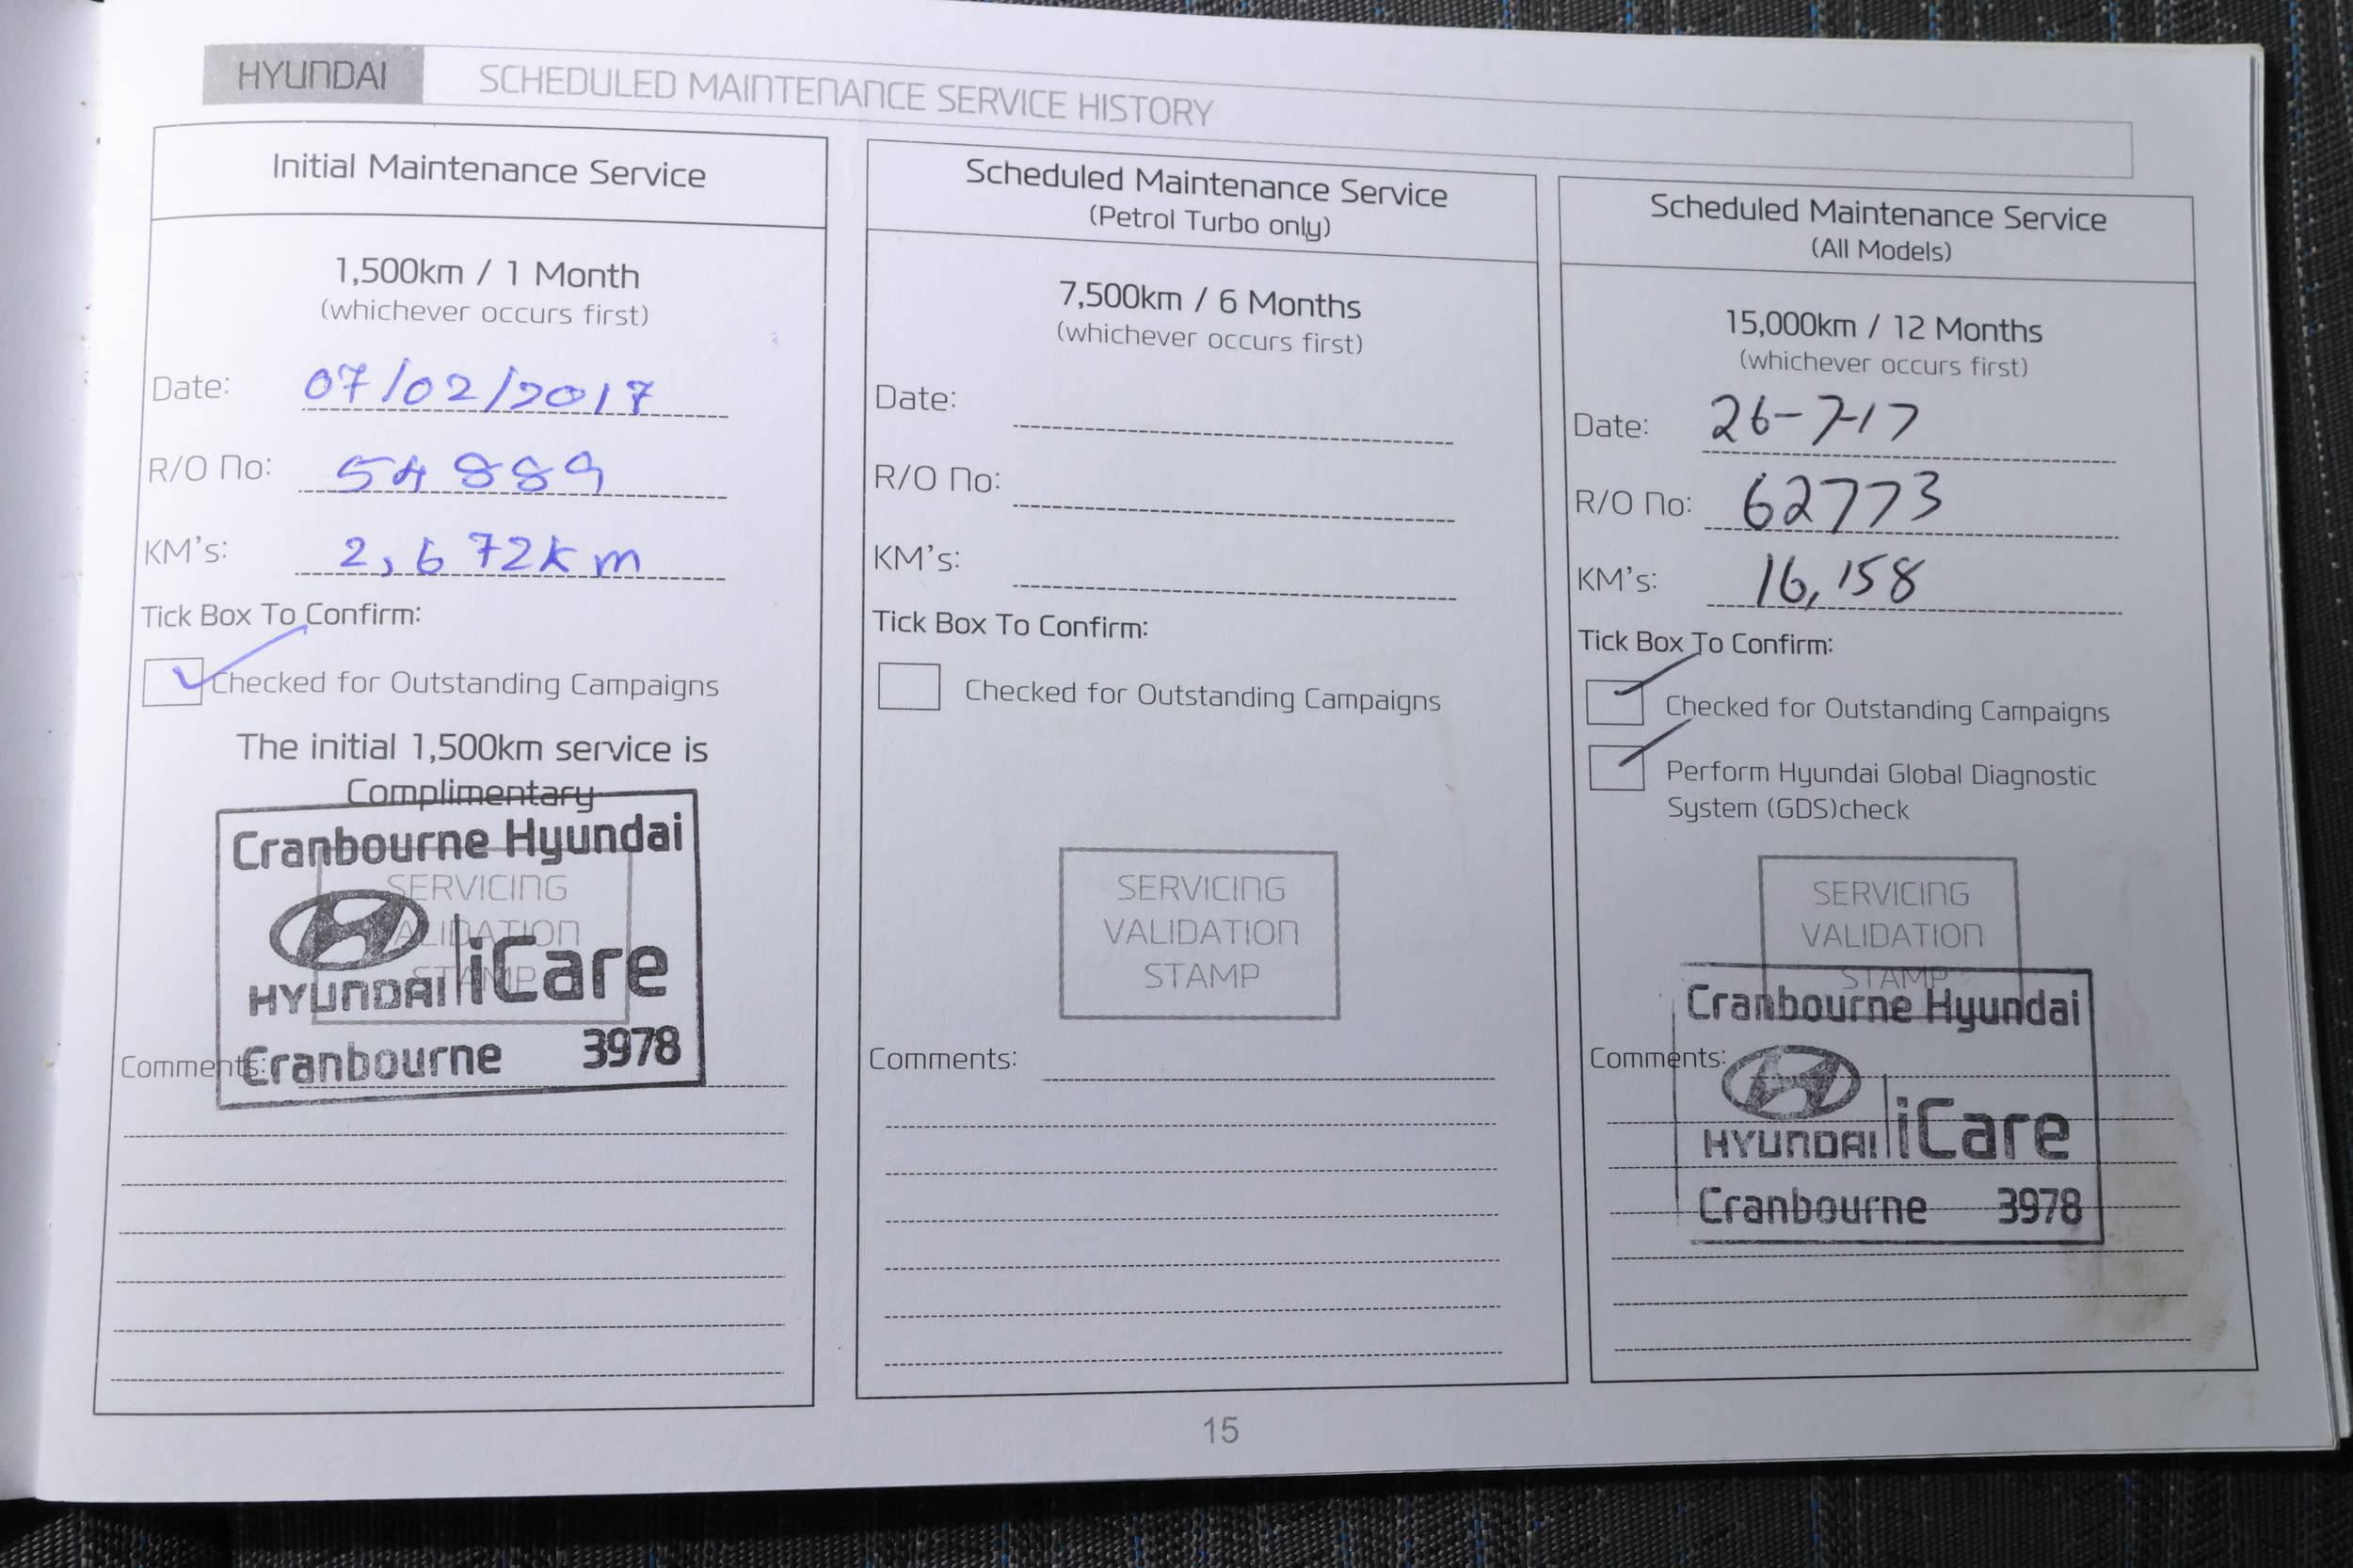 HYUNDAI
SCHEDULED MAINTENANCE SERVICE HISTORY
Initial Maintenance Service
1,500km / 1 Month
(whichever occurs first)
Date: 07/02/2017
R/O No: 54889
KM's: 2,672km
Tick Box To Confirm:
Checked for Outstanding Campaigns
The initial 1,500km service is
Complimentary
Cranbourne Hyundai
SERVICING
VALIDATION
STAMP
HYUNDAI iCare
Cranbourne 3978
Comments:
Scheduled Maintenance Service
(Petrol Turbo only)
7,500km / 6 Months
(whichever occurs first)
Date:
R/O No:
KM's:
Tick Box To Confirm:
Checked for Outstanding Campaigns
SERVICING
VALIDATION
STAMP
Comments:
Scheduled Maintenance Service
(All Models)
15,000km / 12 Months
(whichever occurs first)
Date: 26-7-17
R/O No: 62773
KM's: 16,158
Tick Box To Confirm:
Checked for Outstanding Campaigns
Perform Hyundai Global Diagnostic
System (GDS)check
SERVICING
VALIDATION
STAMP
Cranbourne Hyundai
Comments:
HYUNDAI iCare
Cranbourne 3978
15